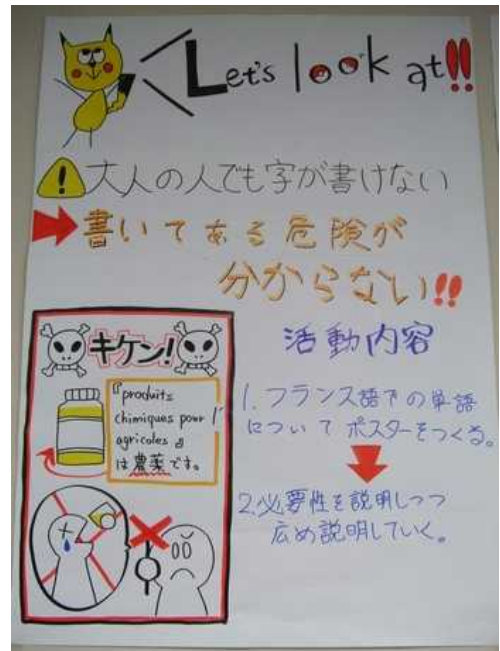 Let's look at!!
大人の人でも字が書けない
書いてある危険が
分からない!!
キケン!
『produits
chimiques pour l'
agricoles』
は農薬です。
活動内容
1.フランス語での単語
についてポスターをつくる。
2.必要性を説明しつつ
広め説明していく。